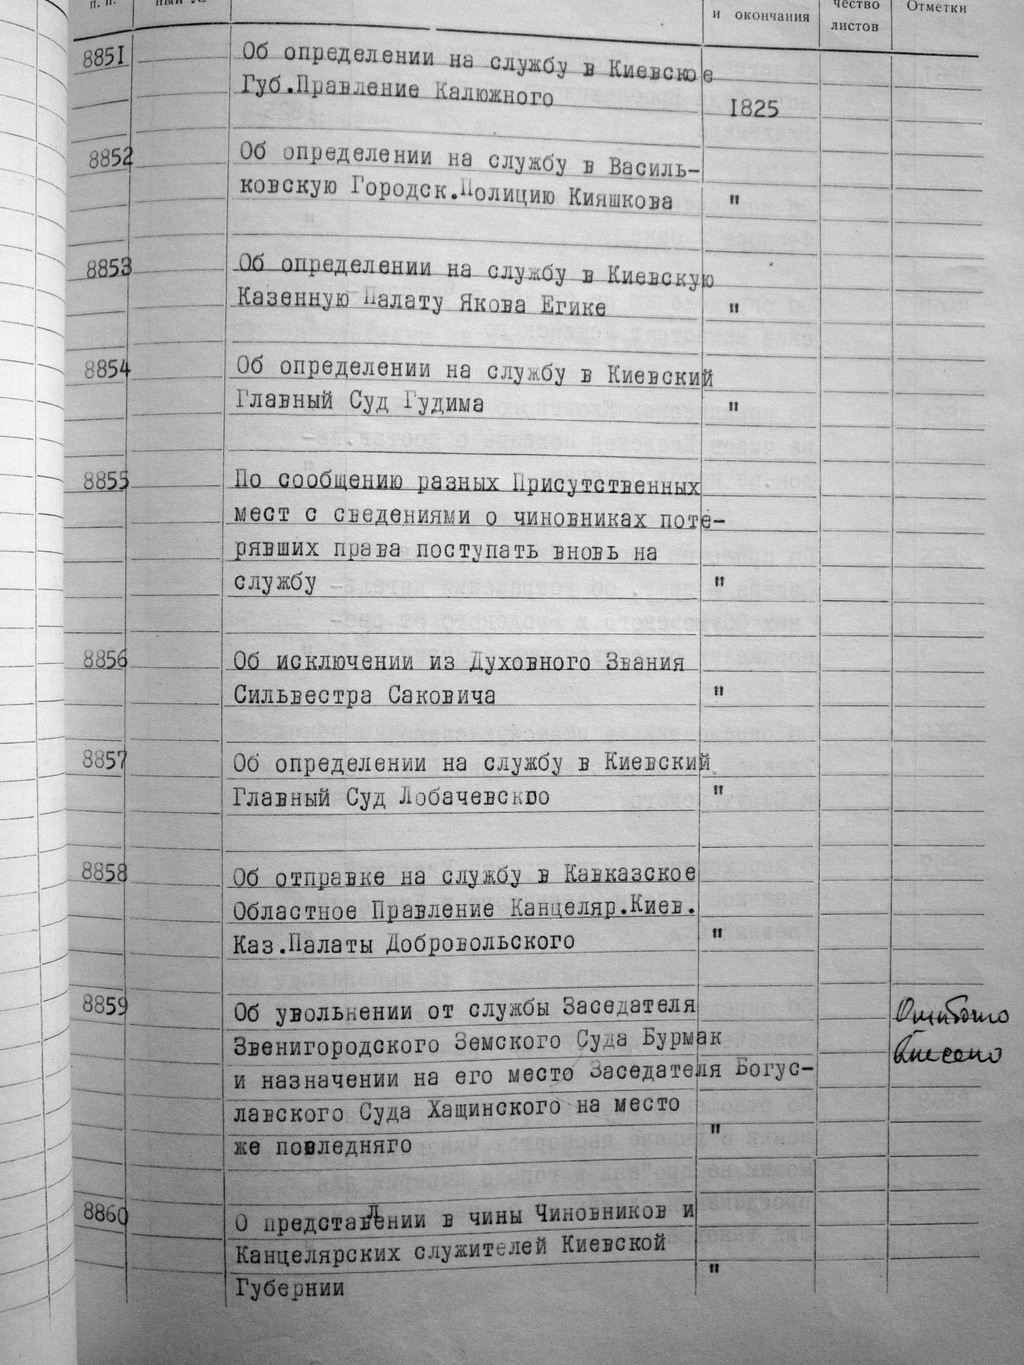 п. п.
ный №
и окончания
чество
листов
Отметки
8851
Об определении на службу в Киевское
Губ.Правление Калюжного
1825
8852
Об определении на службу в Василь-
ковскую Городск.Полицию Кияшкова "
8853
Об определении на службу в Киевскую
Казенную Палату Якова Егике "
8854
Об определении на службу в Киевский
Главный Суд Гудима "
8855
По сообщению разных Присутственных
мест с сведениями о чиновниках поте-
рявших права поступать вновь на
службу "
8856
Об исключении из Духовного Звания
Сильвестра Саковича "
8857
Об определении на службу в Киевский
Главный Суд Лобачевского "
8858
Об отправке на службу в Кавказское
Областное Правление Канцеляр.Киев.
Каз.Палаты Добровольского "
8859
Об увольнении от службы Заседателя
Звенигородского Земского Суда Бурмак
и назначении на его место Заседателя Богус-
лавского Суда Хащинского на место
же повледняго "
Ошибочно
внесено
8860
О представлении в чины Чиновников и
Канцелярских служителей Киевской
Губернии "